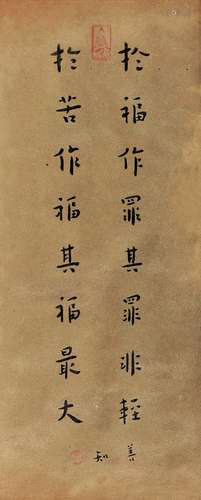 於福作罪其罪非輕
於苦作福其福最大
善知